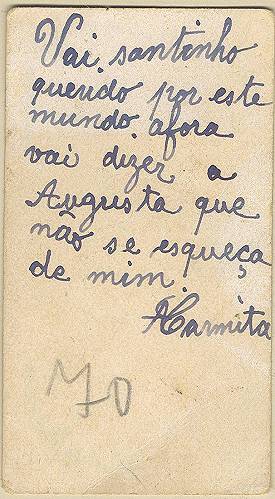 Vai, santinho
querido por este
mundo afora
vai dizer a
Augusta que
não se esqueça
de mim.
Carmita
70